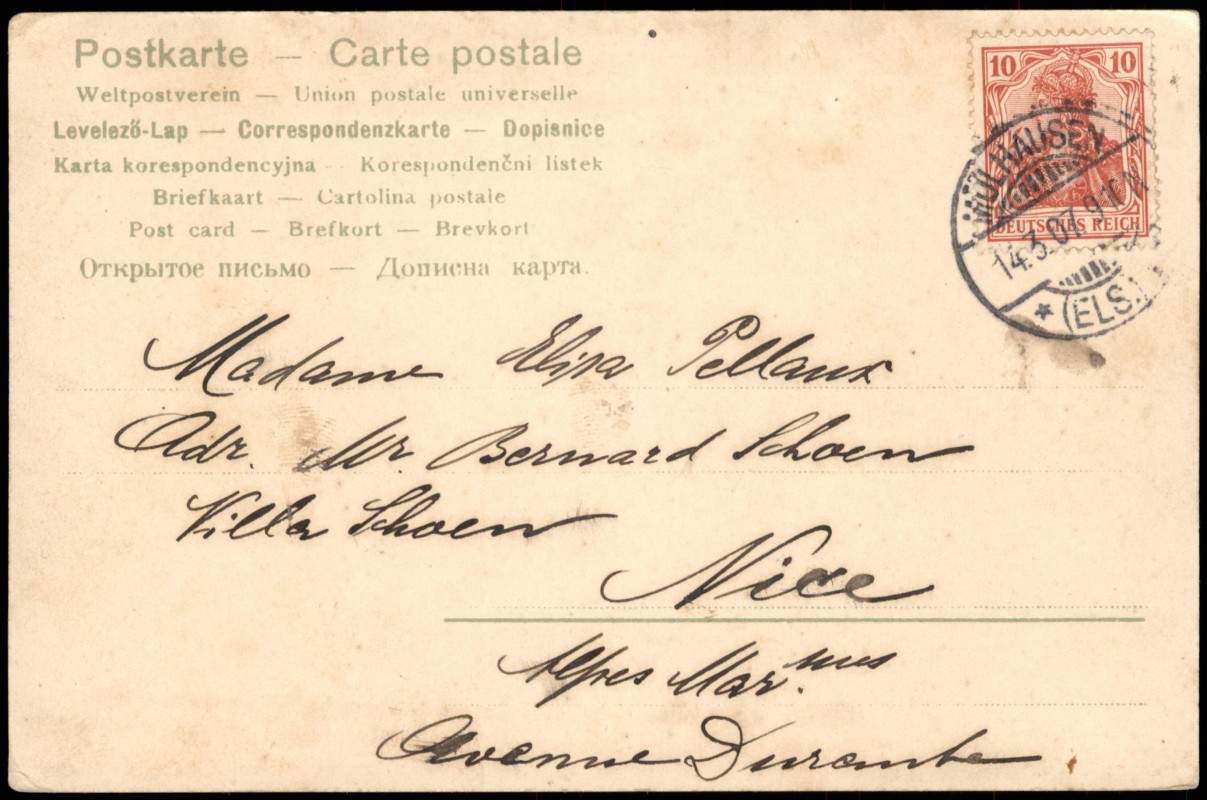 Postkarte — Carte postale
Weltpostverein — Union postale universelle
Levelező-Lap — Correspondenzkarte — Dopisnice
Karta korespondencyjna — Korespondenční listek
Briefkaart — Cartolina postale
Post card — Brefkort — Brevkort
Открытое письмо — Дописна карта.
10 10
DEUTSCHES REICH
MÜLHAUSEN
14.3.07.9
(ELS.)
Madame Elisa Pellaux
Adr. Mr. Bernard Schoen
Villa Schoen
Nice
Alpes Mar.mes
Avenue Durante